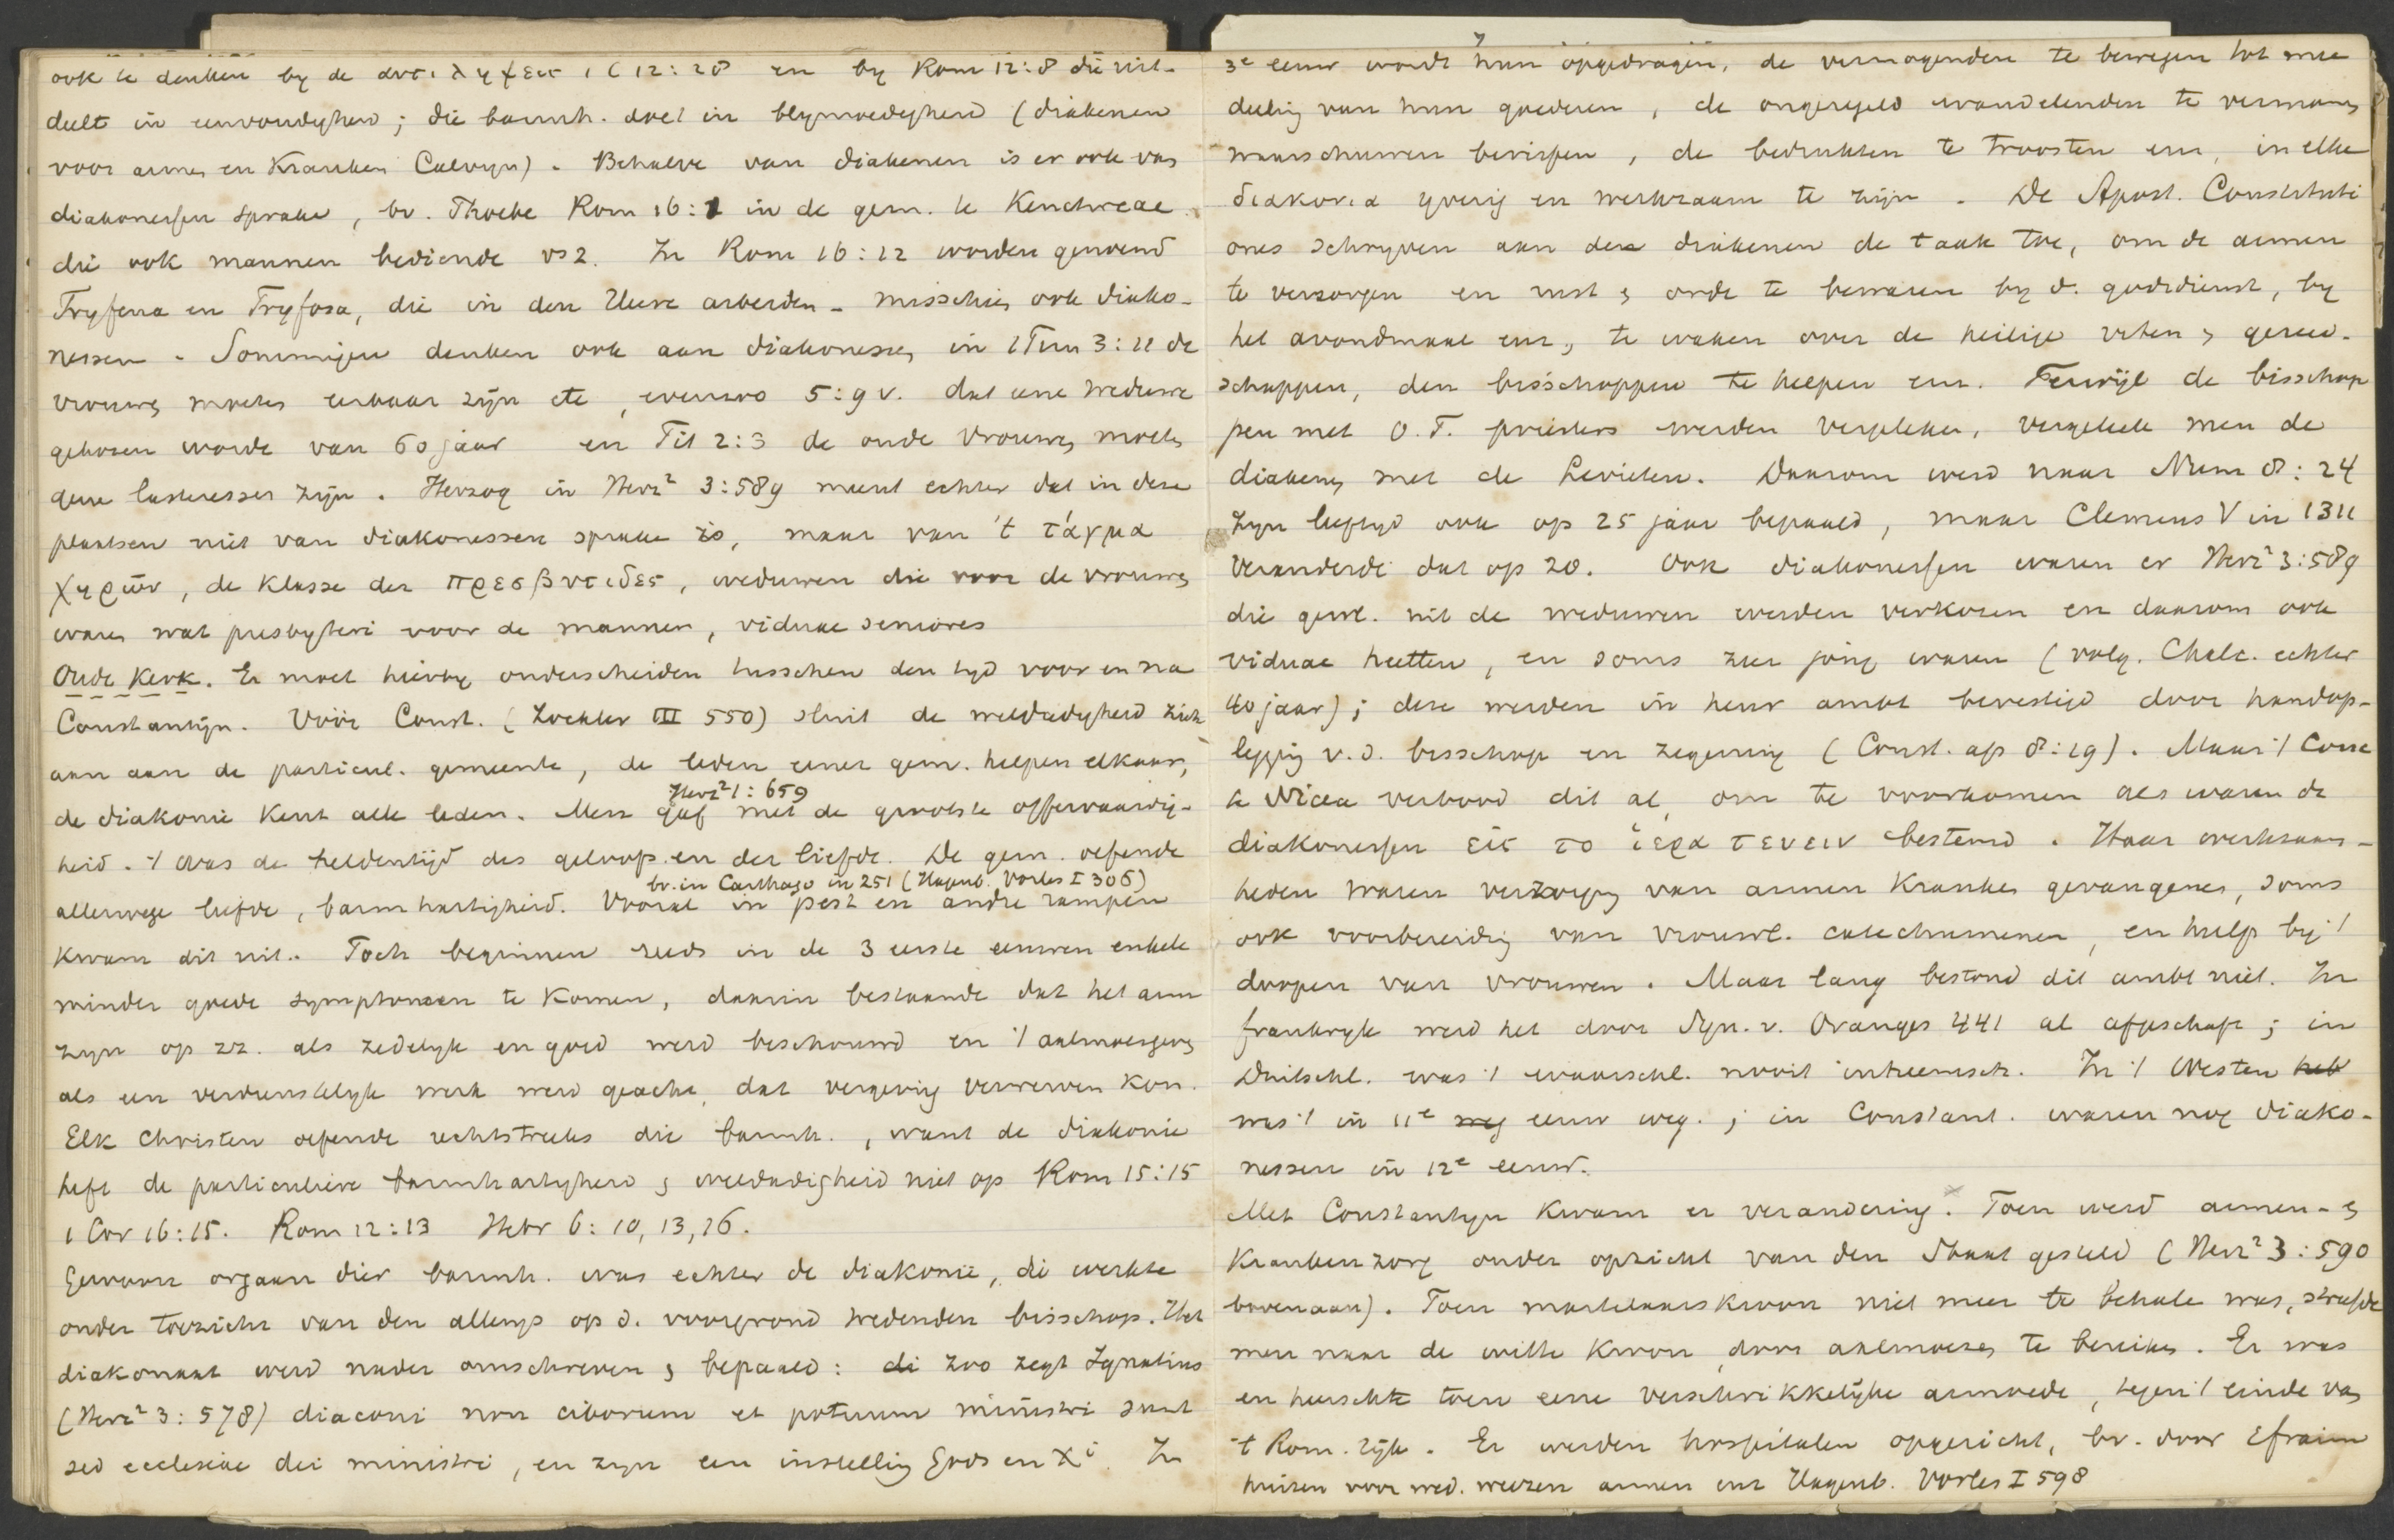 ook te denken by de αντιληψεις 1 C 12:28 en by Rom 12:8 die uit-
deelt in eenvoudigheid; die barmh. doet in blymoedigheid (diakenen
voor armen en Kranken Calvyn). Behalve van diakenen is er ook van
diakonessen sprake, bv. Phoebe Rom 16:1 in de gem. te Kenchreae
die ook mannen bediende vs 2. In Rom 16:12 worden genoemd
Tryfena en Tryfosa, die in den Heere arbeiden – misschien ook diako-
nessen. Sommigen denken ook aan diakonessen in 1 Tim 3:11 de
vrouwen moeten eerbaar zijn etc, evenzoo 5:9 v. dat eene weduwe
gekozen worde van 60 jaar en Tit 2:3 de oude vrouwen moeten
geen lasteressen zijn. Herzog in Herz² 3:589 meent echter dat in deze
plaatsen niet van diakonessen sprake is, maar van 't τάγμα
χηρῶν, de Klasse der πρεσβυτιδες, weduwen die voor de vrouwen
waren wat presbyteri voor de mannen, viduae seniores
Oude Kerk. Er moet hierby onderscheiden tusschen den tyd voor en na
Constantijn. Vóór Const. (Zockler III 550) sluit de weldadigheid zich
aan aan de particul. gemeente, de leden eener gem. helpen elkaar,
Herz² 1:659
de diakonie Kent alle leden. Men gaf met de grootste offervaardig-
heid. 't was de heldentijd des geloofs en der liefde. De gem. oefende
bv. in Carthago in 251 (Hagenb. Vorles I 306)
allerwege liefde, barmhartigheid. Vooral in pest en andre rampen
kwam dit uit. Toch beginnen reeds in de 3 eerste eeuwen enkele
minder goede symptomen te Komen, daarin bestaande dat het arm
zyn op zz. als zedelyk en goed werd beschouwd en 't aalmoesgeven
als een verdienstelyk werk werd geacht, dat vergeving verwerven Kon.
Elk Christen oefende rechtstreeks die barmh., want de diakonie
heft de particuliere barmhartigheid & weldadigheid niet op Rom 15:15
1 Cor 16:15. Rom 12:13 Hebr 6:10, 13, 16.
Gewoon orgaan dier barmh. was echter de diakonie, die werkte
onder toezicht van den allengs op d. voorgrond tredenden bisschop. Het
diakonaat werd nader omschreven & bepaald: di zoo zegt Ignatius
(Herz² 3:578) diaconi non ciborum et potuum ministri sunt
sed ecclesiae dei ministri, en zyn een instelling Gods en Xⁱ. In
3e eeuw wordt hun opgedragen, de vermogenden te bewegen tot mee
deeling van hun goederen, de ongeregeld wandelenden te vermanen
waarschuwen berispen, de bedrukten te troosten enz, in elke
διακονια yverig en werkzaam te zijn. De Apost. Constituti
ones schryven aan den diakenen de taak toe, om de armen
te verzorgen en rust & orde te bewaren by d. godsdienst, by
het avondmaal enz, te waken over de heilige vaten & gereed-
schappen, den bisschoppen te helpen enz. Terwijl de bisschop
pen met O.T. priesters werden vergeleken, vergeleek men de
diakens met de Levieten. Daarom werd naar Num 8:24
hun leeftyd ook op 25 jaar bepaald, maar Clemens V in 1311
veranderde dat op 20. Ook diakonessen waren er Herz² 3:589
die gewl. uit de weduwen werden verkozen en daarom ook
viduae heetten, en soms zeer jong waren (volg. Chalc. echter
40 jaar); deze werden in heur ambt bevestigd door handop-
legging v.d. bisschop en zegening (Const. ap 8:19). Maar 't Conc
te Nicea verbood dit al, om te voorkomen als waren de
diakonessen εἰς το ἱερατευειν bestemd. Haar werkzaam-
heden waren verzorging van armen Kranken gevangenen, soms
ook voorbereiding van vrouwl. catechumenen, en hulp by 't
doopen van vrouwen. Maar lang bestond dit ambt niet. In
frankryk werd het door Syn. v. Oranges 441 al afgeschaft; in
Duitschl. was 't waarschl. nooit inheemsch. In 't Westen heb
was 't in 11e weg eeuw weg.; in Constant. waren nog diako-
nessen in 12e eeuw.
Met Constantyn kwam er verandering. Toen werd armen- &
Krankenzorg onder opzicht van den Staat gesteld (Herz² 3:590
bovenaan). Toen martelaarskroon niet meer te behale was, strafde
men naar de witte kroon door aalmoezen te bereiken. Er was
en heerschte toen eene verschrikkelijke armoede, tegen 't einde van
't Rom. rijk. Er werden hospitalen opgericht, bv. door Efraim
huizen voor wed. weezen armen enz Hagenb. Vorles I 598